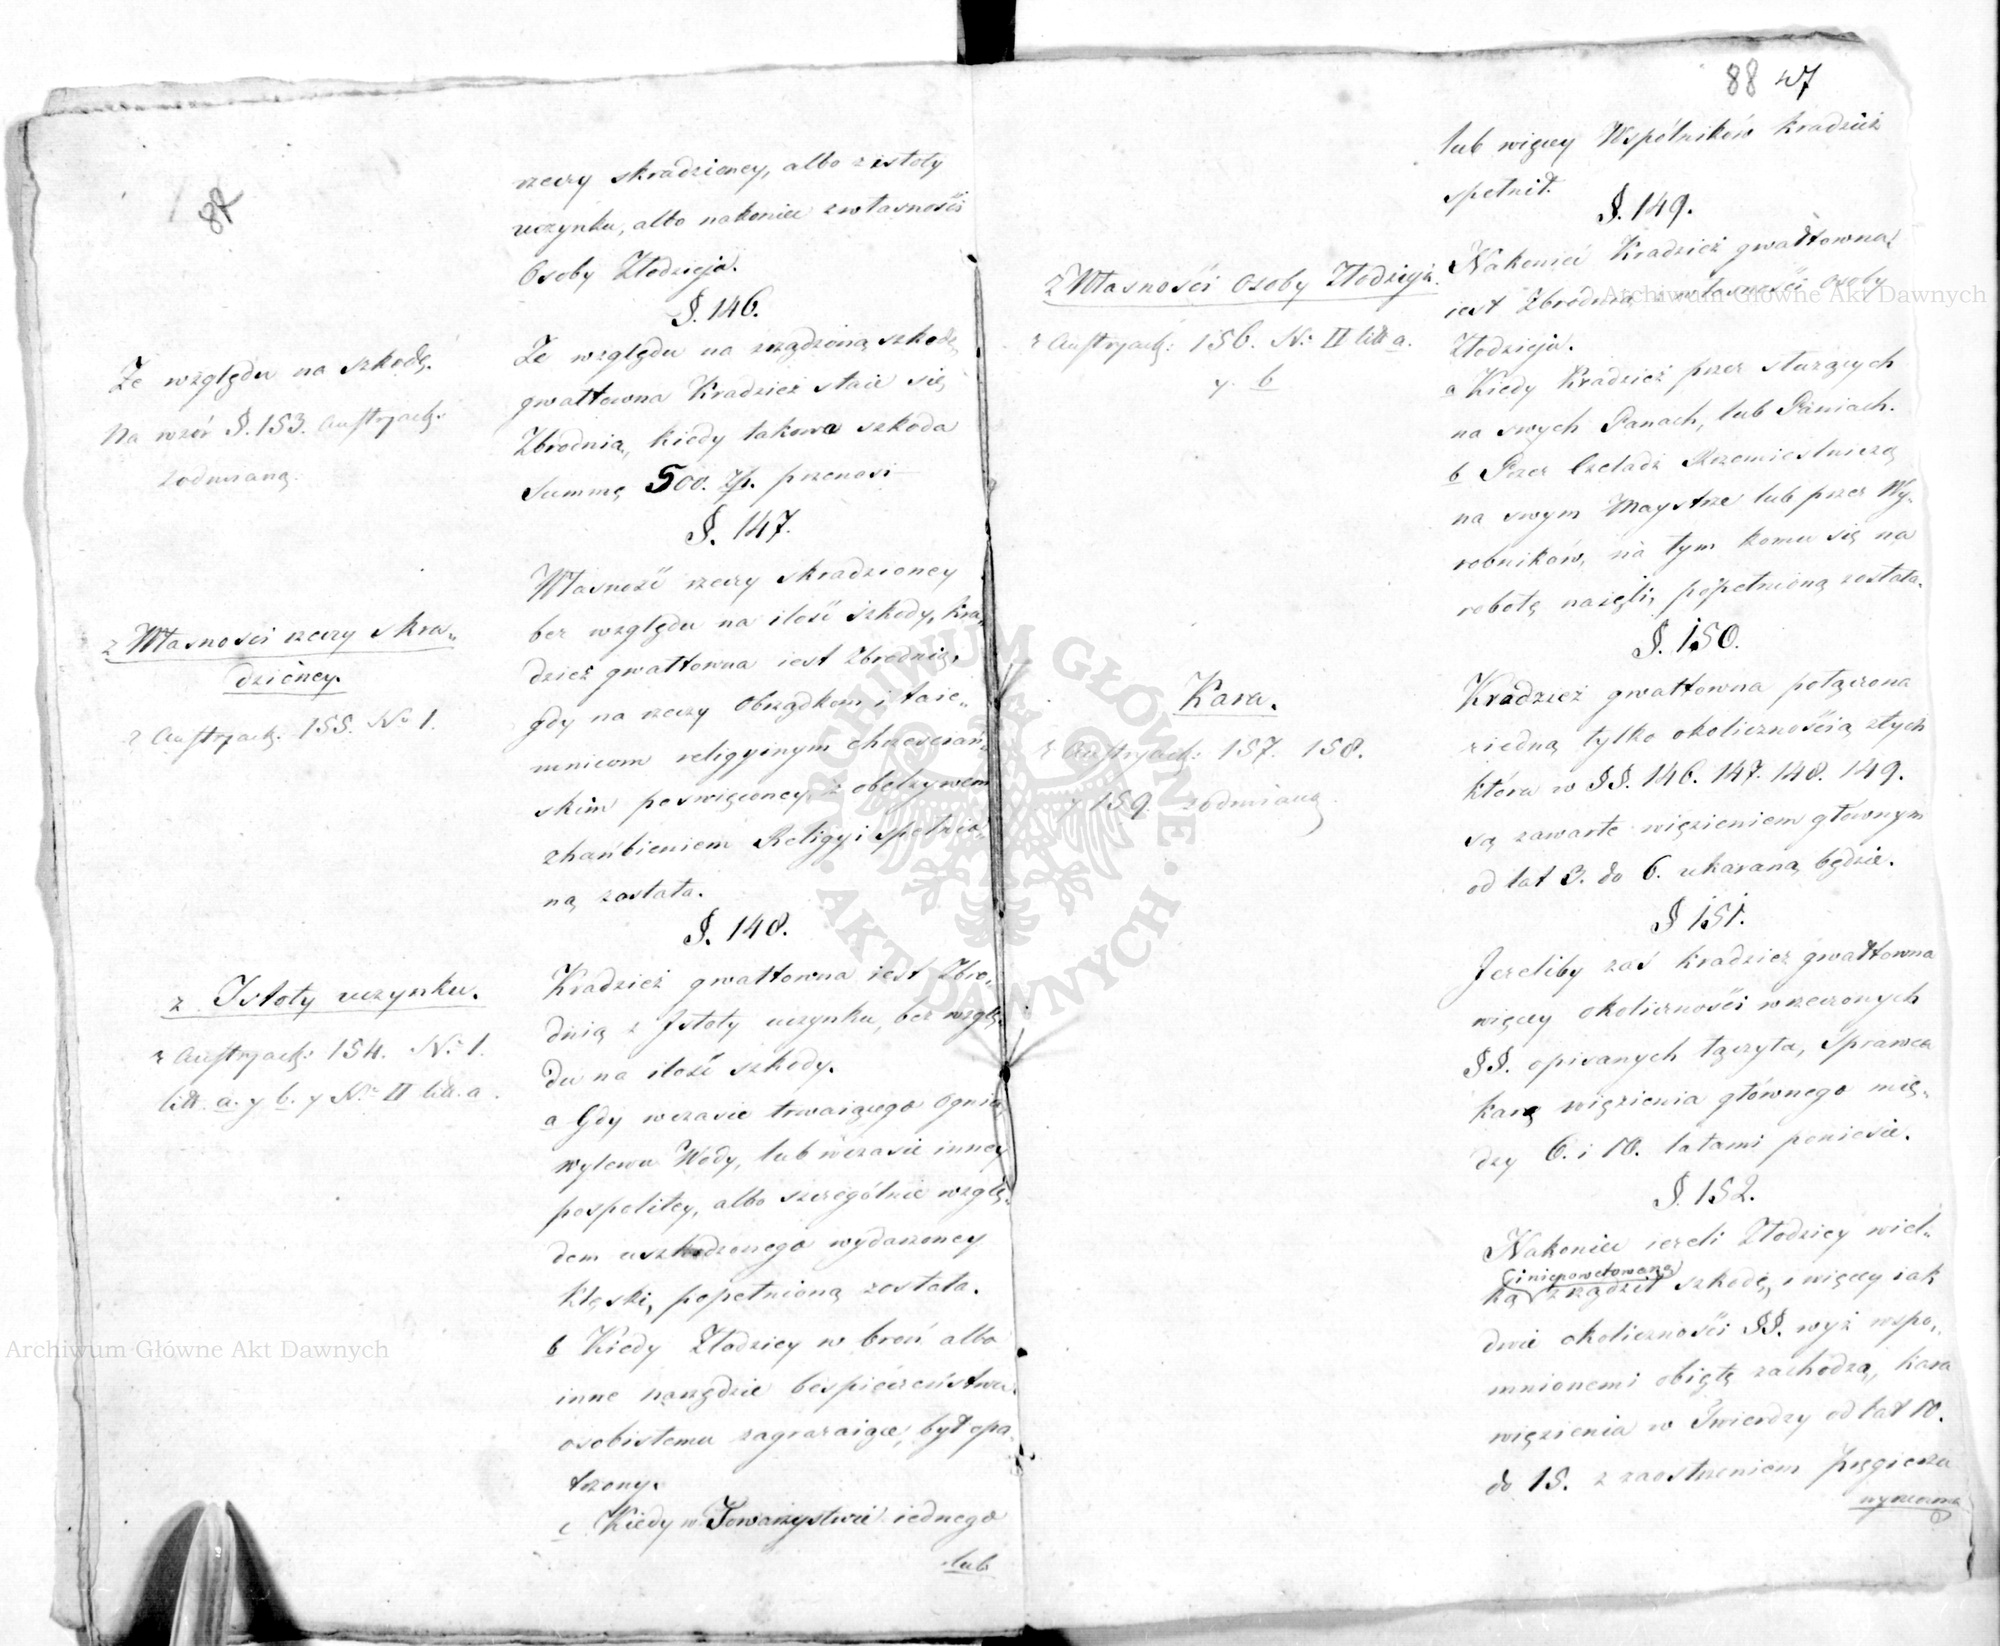 87
rzeczy skradzioney, albo z istoty
uczynku, albo nakoniec z własności
Osoby Złodzieja.
§. 146.
Ze względu na szkodę.
Na wzór §. 153. Austryack:
z odmianą.
Ze względu na zrządzoną szkodę
gwałtowna Kradzież staie się
Zbrodnią, kiedy takowa szkoda
Summę 500. Złp. przenosi
§. 147.
z Własności rzeczy skra„
dzioney.
z Austryack: 155. N° 1.
Własność rzeczy skradzioney
bez względu na ilość szkody, kra„
dzież gwałtowna iest Zbrodnią,
Gdy na rzeczy Obrządkom i taie„
mnicom religyinym chrześciań„
skim poświęconey, z obelżywem
zhańbieniem Religyi spełnio„
ną została.
§. 148.
z Istoty uczynku.
z Austryack: 154. N° 1.
litt. a. y b. y N° II litt. a.
Kradzież gwałtowna iest Zbro„
dnią z Istoty uczynku, bez wzglę„
du na ilość szkody.
a Gdy wczasie trwaiącego Ognia,
wylewu Wody, lub wczasie inney
pospolitey, albo szczególnie wzglę„
dem uszkodzonego wydarzoney
klęski, popełnioną została.
b Kiedy Złodziey w broń albo
inne narzędzie bespieczeństwu
osobistemu zagrażaiące, był opa„
trzony.
c Kiedy w Towarzystwie iednego
lub
88 47
lub więcey Wspólników kradzież
spełnił.
§. 149.
Z Własności Osoby Złodzieja.
z Austryack: 156. N° II litt a.
y. b
Nakoniec Kradzież gwałtowna,
iest Zbrodnią z własności Osoby
Złodzieja.
a Kiedy Kradzież przez służących
na swych Panach, lub Paniach.
b Przez Czeladź Rzemieślniczą
na swym Maystrze lub przez Wy„
robników, na tym komu się na
robotę naięli, popełnioną została.
§. 150.
Kara.
z Austryack: 157. 158.
y 159. z odmianą.
Kradzież gwałtowna połączona
z iedną tylko okolicznością z tych
która w §§. 146. 147. 148. 149.
są zawarte więzieniem głownym
od lat 3. do 6. ukaraną będzie.
§ 151.
Jeżeliby zaś kradzież gwałtowna
więcey okoliczności wrzeczonych
§§. opisanych łączyła, Sprawca
karę więzienia głównego mię„
dzy 6. i 10. latami poniesie.
§. 152.
Nakoniec ieżeli Złodziey wiel„
i niepowetowaną
ką zrządził szkodę, i więcey iak
dwie okoliczności §§. wyż wspo„
mnionemi obięte zachodzą, kara
więzienia w Twierdzy od lat 10.
do 15. z zaostrzeniem Pręgierza
wyrzeczona
Archiwum Główne Akt Dawnych
Archiwum Główne Akt Dawnych
ARCHIWUM GŁÓWNE · AKT DAWNYCH ·